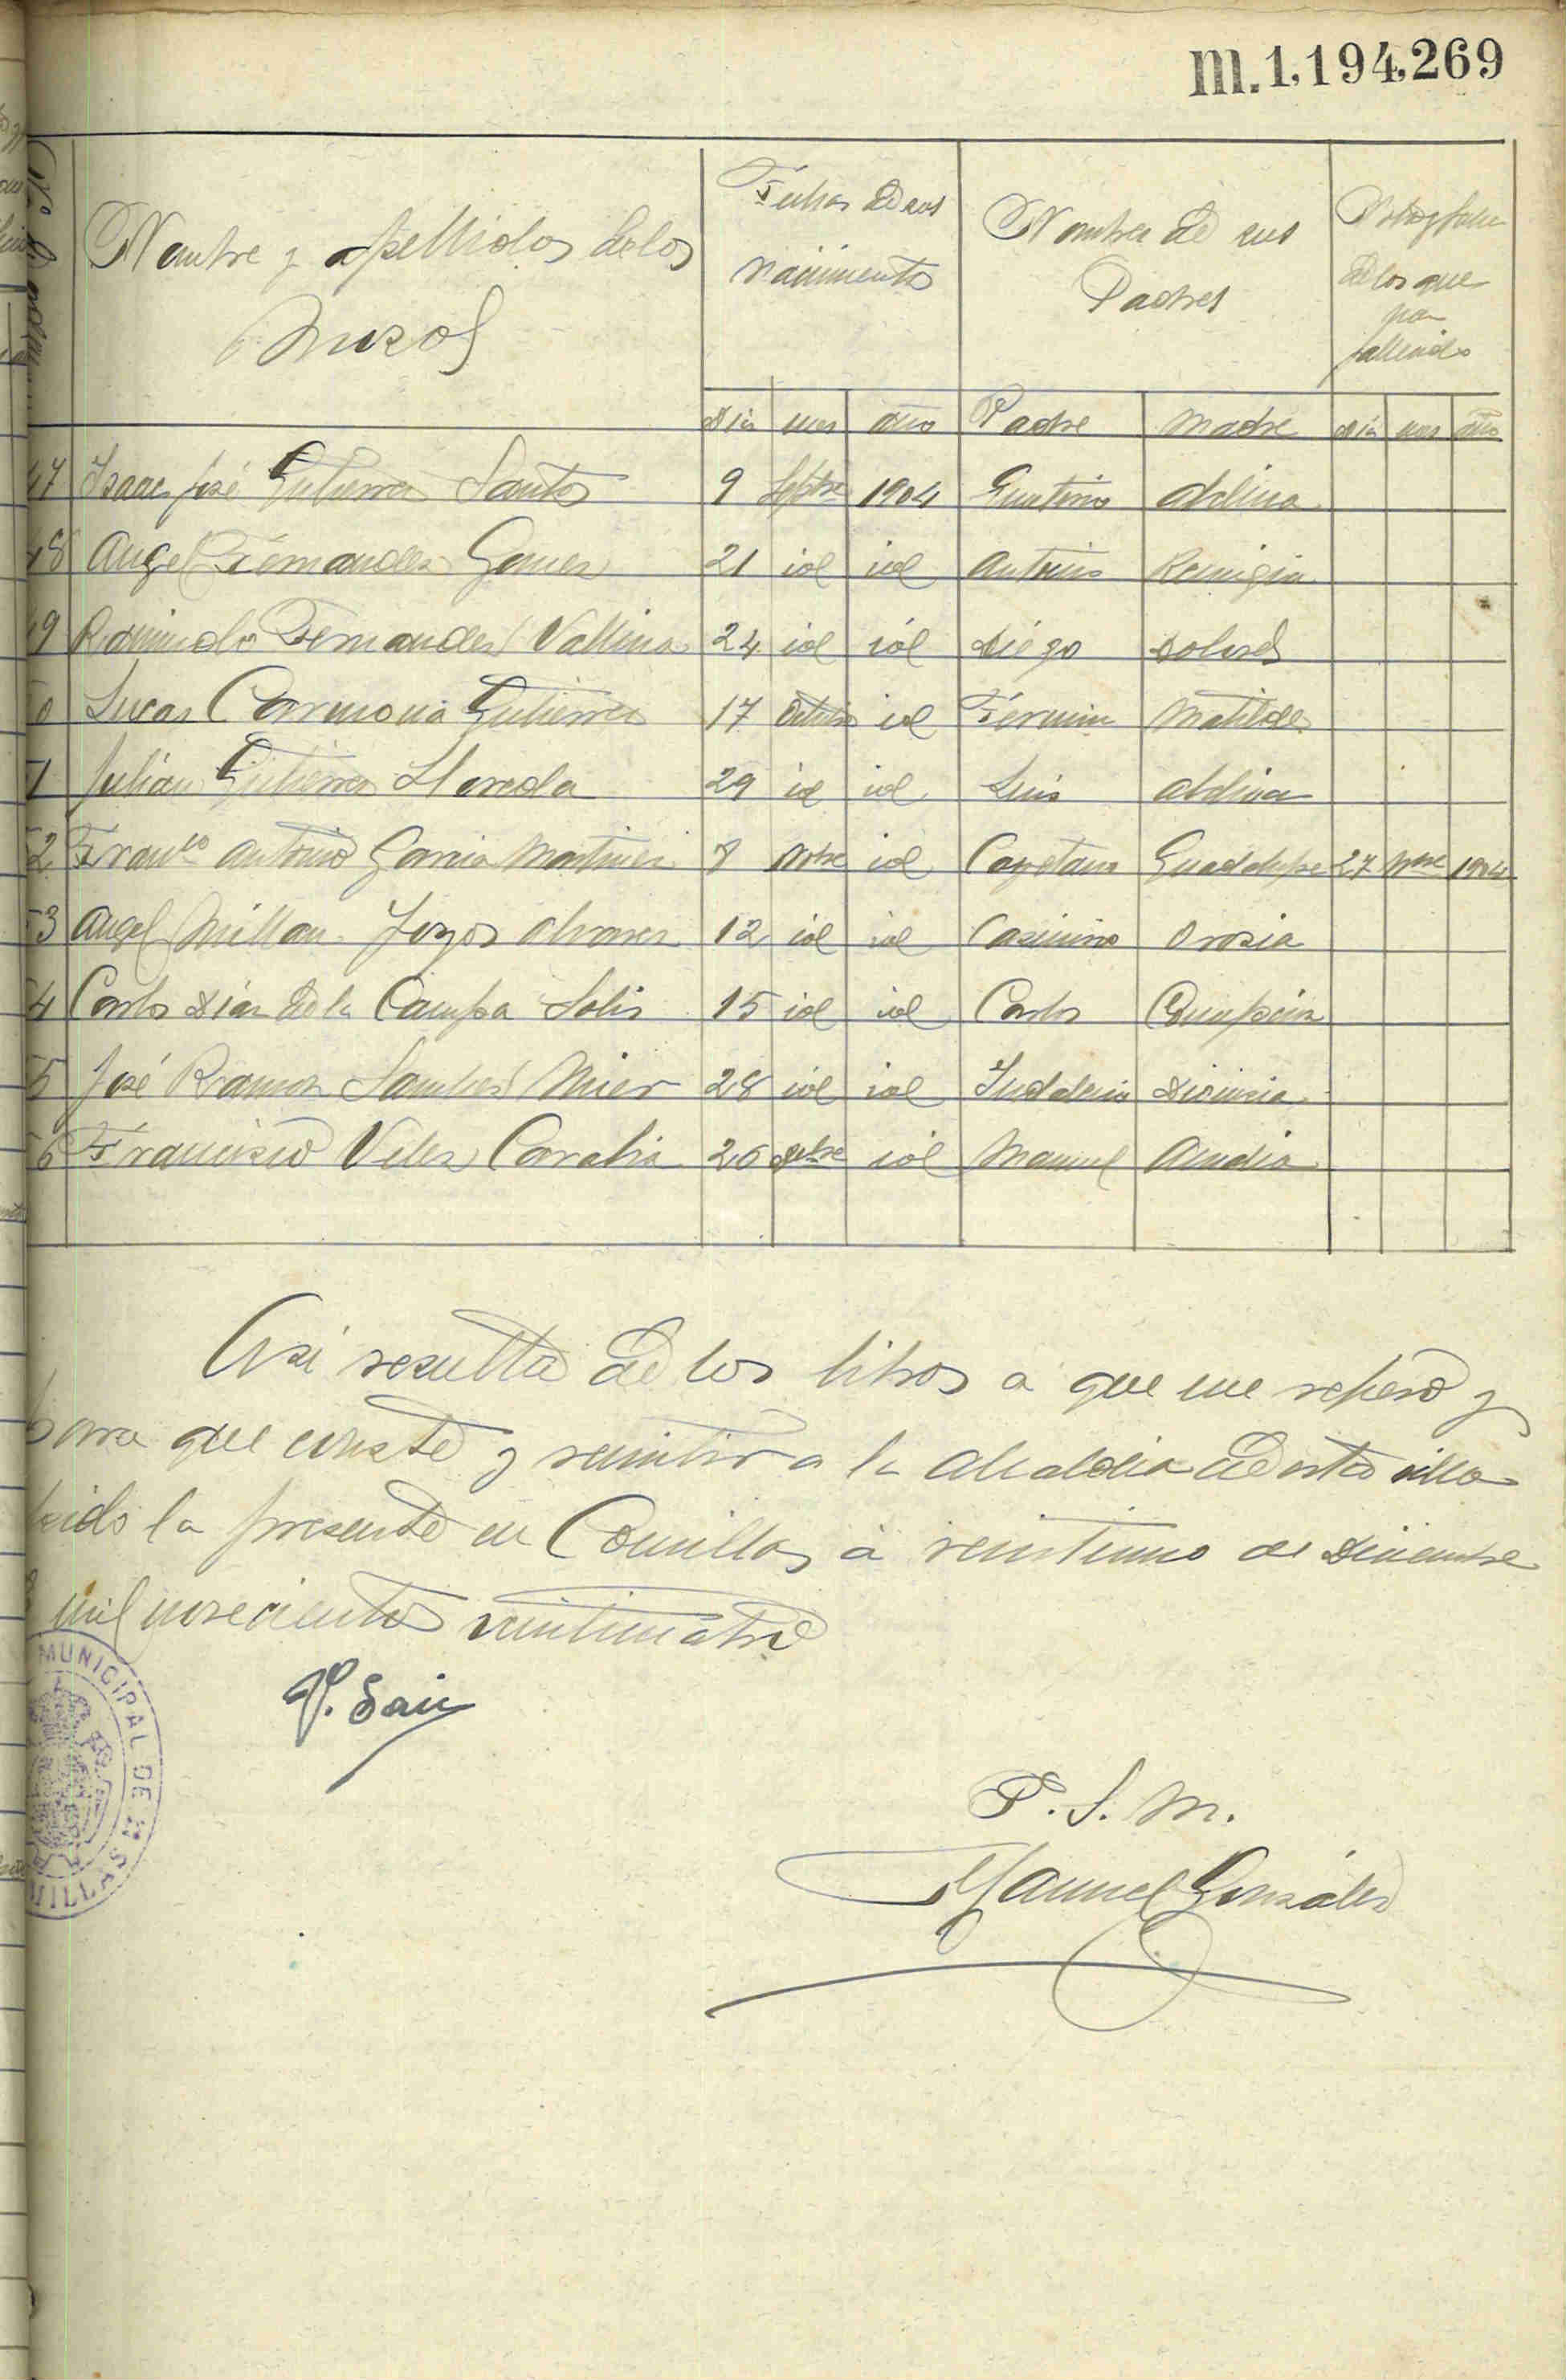 M.1,194,269
Nombre y apellidos de los
Mozos
Fechas de sus
nacimientos
Nombres de sus
Padres
de los que
han
fallecido
Dia mes año Padre Madre dia mes año
47 Isaac José Gutierrez Santos 9 Sepbre 1904 Adelina
48 Angel Fernandez Gomez 21 id id Antonio Remigia
49 Raimundo Fernandez Vallina 24 id id Diego Dolores
50 Lucas Carmona Gutierrez 17 Octubre id Fermin Matilde
51 Julian Gutierrez Llareda 29 id id Luis
52 Franco Antonio Garcia Martinez 8 Nobre id Cayetano Guadalupe 27 Nbre 1904
53 Angel Millan Yozos Alvarez 12 id id Casimiro Orosia
54 Carlos Diaz de la Campa Solis 15 id id Carlos
55 José Ramon Sanchez Mier 28 id id Indalecio Dionisia
56 Francisco Velez 26 id Manuel
Asi resulta de los libros a que me refiero y
para que conste y remitir a la Alcaldia de esta villa
pido la presente en Comillas a veintiuno de Diciembre
mil novecientos veinticuatro
MUNICIPAL DE
MILLAS
V. Saiz
P. S. M.
Manuel González